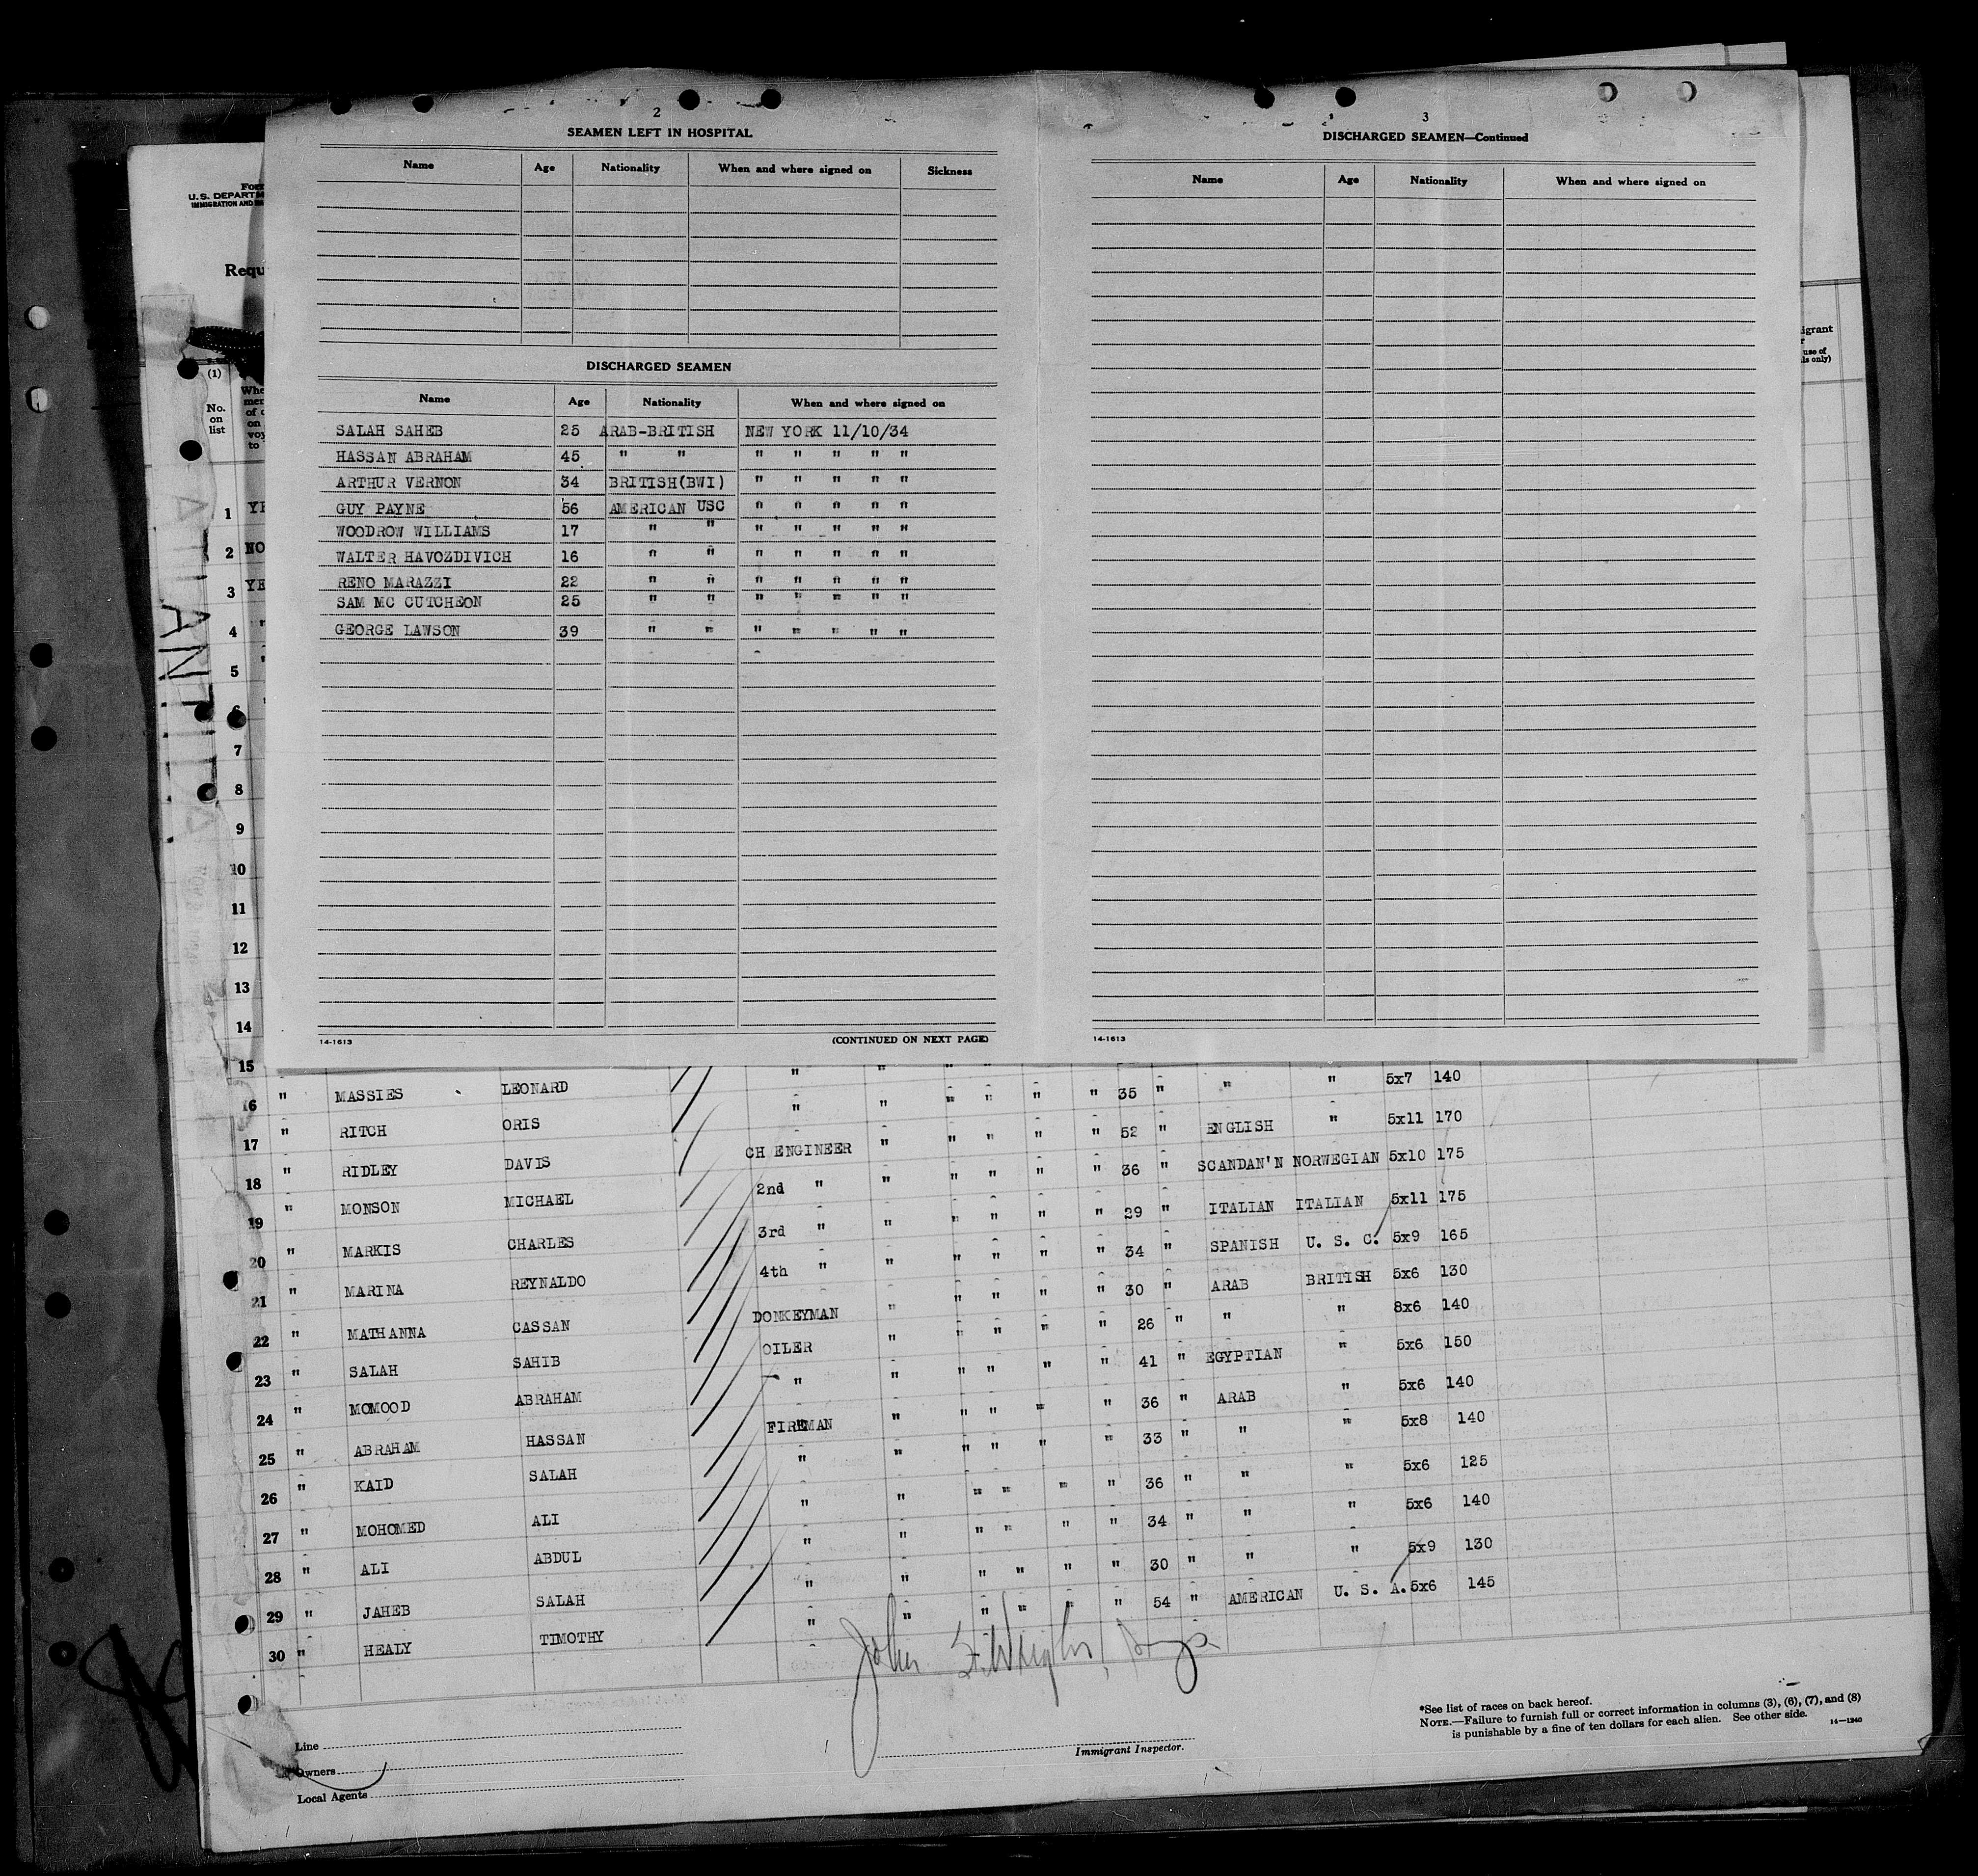 2
SEAMEN LEFT IN HOSPITAL
Name Age Nationality When and where signed on Sickness
DISCHARGED SEAMEN
Name Age Nationality When and where signed on
SALAH SAHEB 25 ARAB-BRITISH NEW YORK 11/10/34
HASSAN ABRAHAM 45 " " " " " " "
ARTHUR VERNON 34 BRITISH(BWI) " " " " "
GUY PAYNE 56 AMERICAN USC " " " " "
WOODROW WILLIAMS 17 " " " " " " "
WALTER HAVOZDIVICH 16 " " " " " " "
RENO MARAZZI 22 " " " " " " "
SAM MC CUTCHEON 25 " " " " " " "
GEORGE LAWSON 39 " " " " " " "
14-1613 (CONTINUED ON NEXT PAGE)
3
DISCHARGED SEAMEN—Continued
Name Age Nationality When and where signed on
14-1613
U.S. DEPARTM
IMMIGRATION AND
Requ
(1)
No.
on
list
Whe
mer
of
on
voy
to
igrant
use of
ls only)
1 YE
2 NO
3 YE
4 "
5
6
7
8
9
10
11
12
13
14
15 " " " " " " 5x7 140
16 " MASSIES LEONARD " " " " " " 35 " " " 5x11 170
17 " RITCH ORIS CH ENGINEER " " " " " 52 " ENGLISH " 5x10 175
18 " RIDLEY DAVIS 2nd " " " " " " 36 " SCANDAN'N NORWEGIAN 5x11 175
19 " MONSON MICHAEL 3rd " " " " " " 29 " ITALIAN ITALIAN 5x9 165
20 " MARKIS CHARLES 4th " " " " " " 34 " SPANISH U. S. C. 5x6 130
21 " MARINA REYNALDO DONKEYMAN " " " " " 30 " ARAB BRITISH 8x6 140
22 " MATHANNA CASSAN OILER " " " " " 26 " " " 5x6 150
23 " SALAH SAHIB " " " " " " 41 " EGYPTIAN " 5x6 140
24 " MOMOOD ABRAHAM FIREMAN " " " " " 36 " ARAB " 5x8 140
25 " ABRAHAM HASSAN " " " " " " 33 " " " 5x6 125
26 " KAID SALAH " " " " " " 36 " " " 5x6 140
27 " MOHOMED ALI " " " " " " 34 " " " 5x9 130
28 " ALI ABDUL " " " " " " 30 " " " 5x6 145
29 " JAHEB SALAH " " " " " " 54 " AMERICAN U. S. A.
30 " HEALY TIMOTHY "
John
Line
Owners
Local Agents
Immigrant Inspector.
*See list of races on back hereof.
NOTE.—Failure to furnish full or correct information in columns (3), (6), (7), and (8)
is punishable by a fine of ten dollars for each alien. See other side. 14—1240